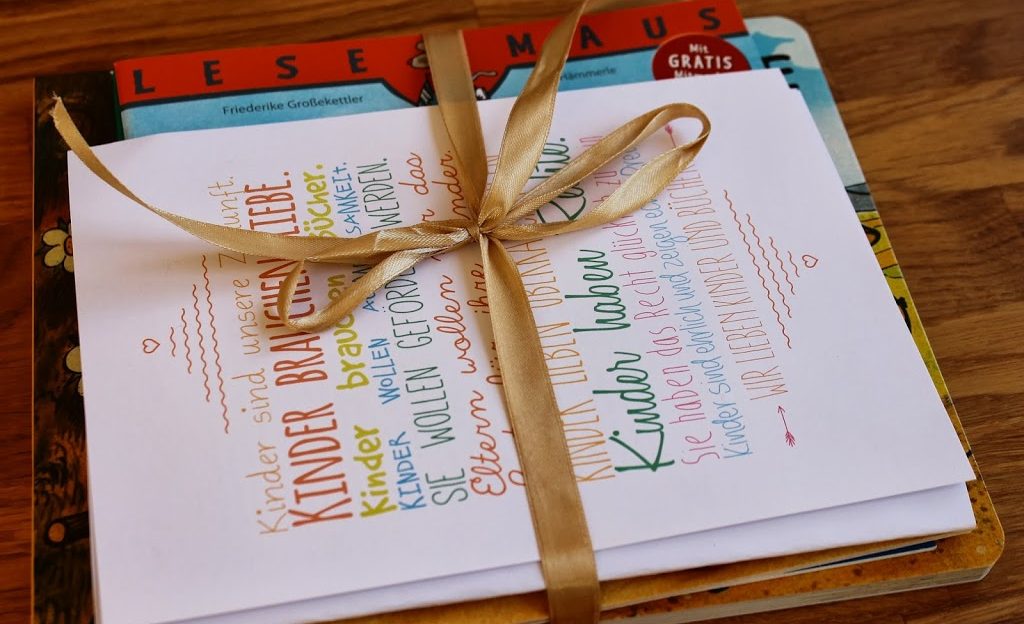 LESE MAUS
Friederike Großekettler
Hämmerle
Mit
GRATIS
Kinder sind unsere
KINDER BRAUCHEN LIEBE.
Kinder brauchen Bücher.
KINDER WOLLEN
SIE WOLLEN GEFÖRDERT WERDEN.
Eltern wollen ihre das
KINDER LIEBEN
Kinder haben
Sie haben das Recht glücklich zu
Kinder sind ehrlich und zeigen
WIR LIEBEN KINDER UND BÜCHER